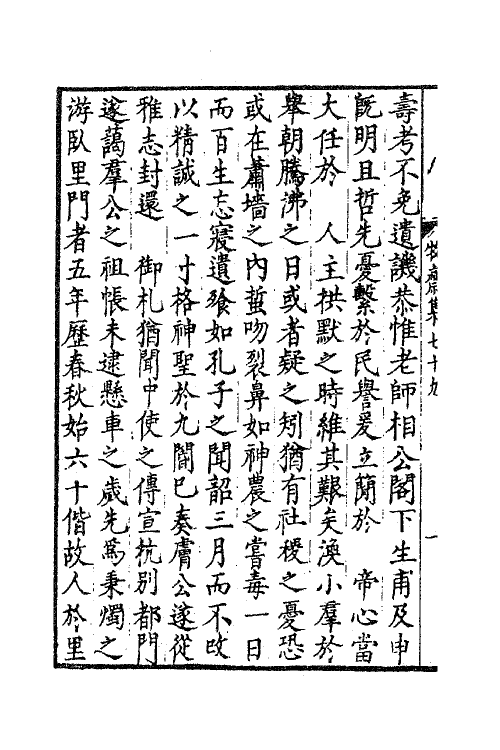 牧齋集七十九
一
壽考不免遺譏恭惟老師相公閣下生甫及申
旣明且哲先憂繫於民譽爰立簡於　帝心當
大任於　人主拱默之時維其艱矣渙小羣於
舉朝騰沸之日或者疑之矧猶有社稷之憂恐
或在蕭墻之內蜇吻裂鼻如神農之嘗毒一日
而百生忘寢遺飱如孔子之聞韶三月而不改
以精誠之一寸格神聖於九閽已奏膚公遂從
雅志封還　御札猶聞中使之傳宣抗別都門
遂藹羣公之祖帳未逮懸車之歲先爲秉燭之
游臥里門者五年歷春秋始六十偕故人於里